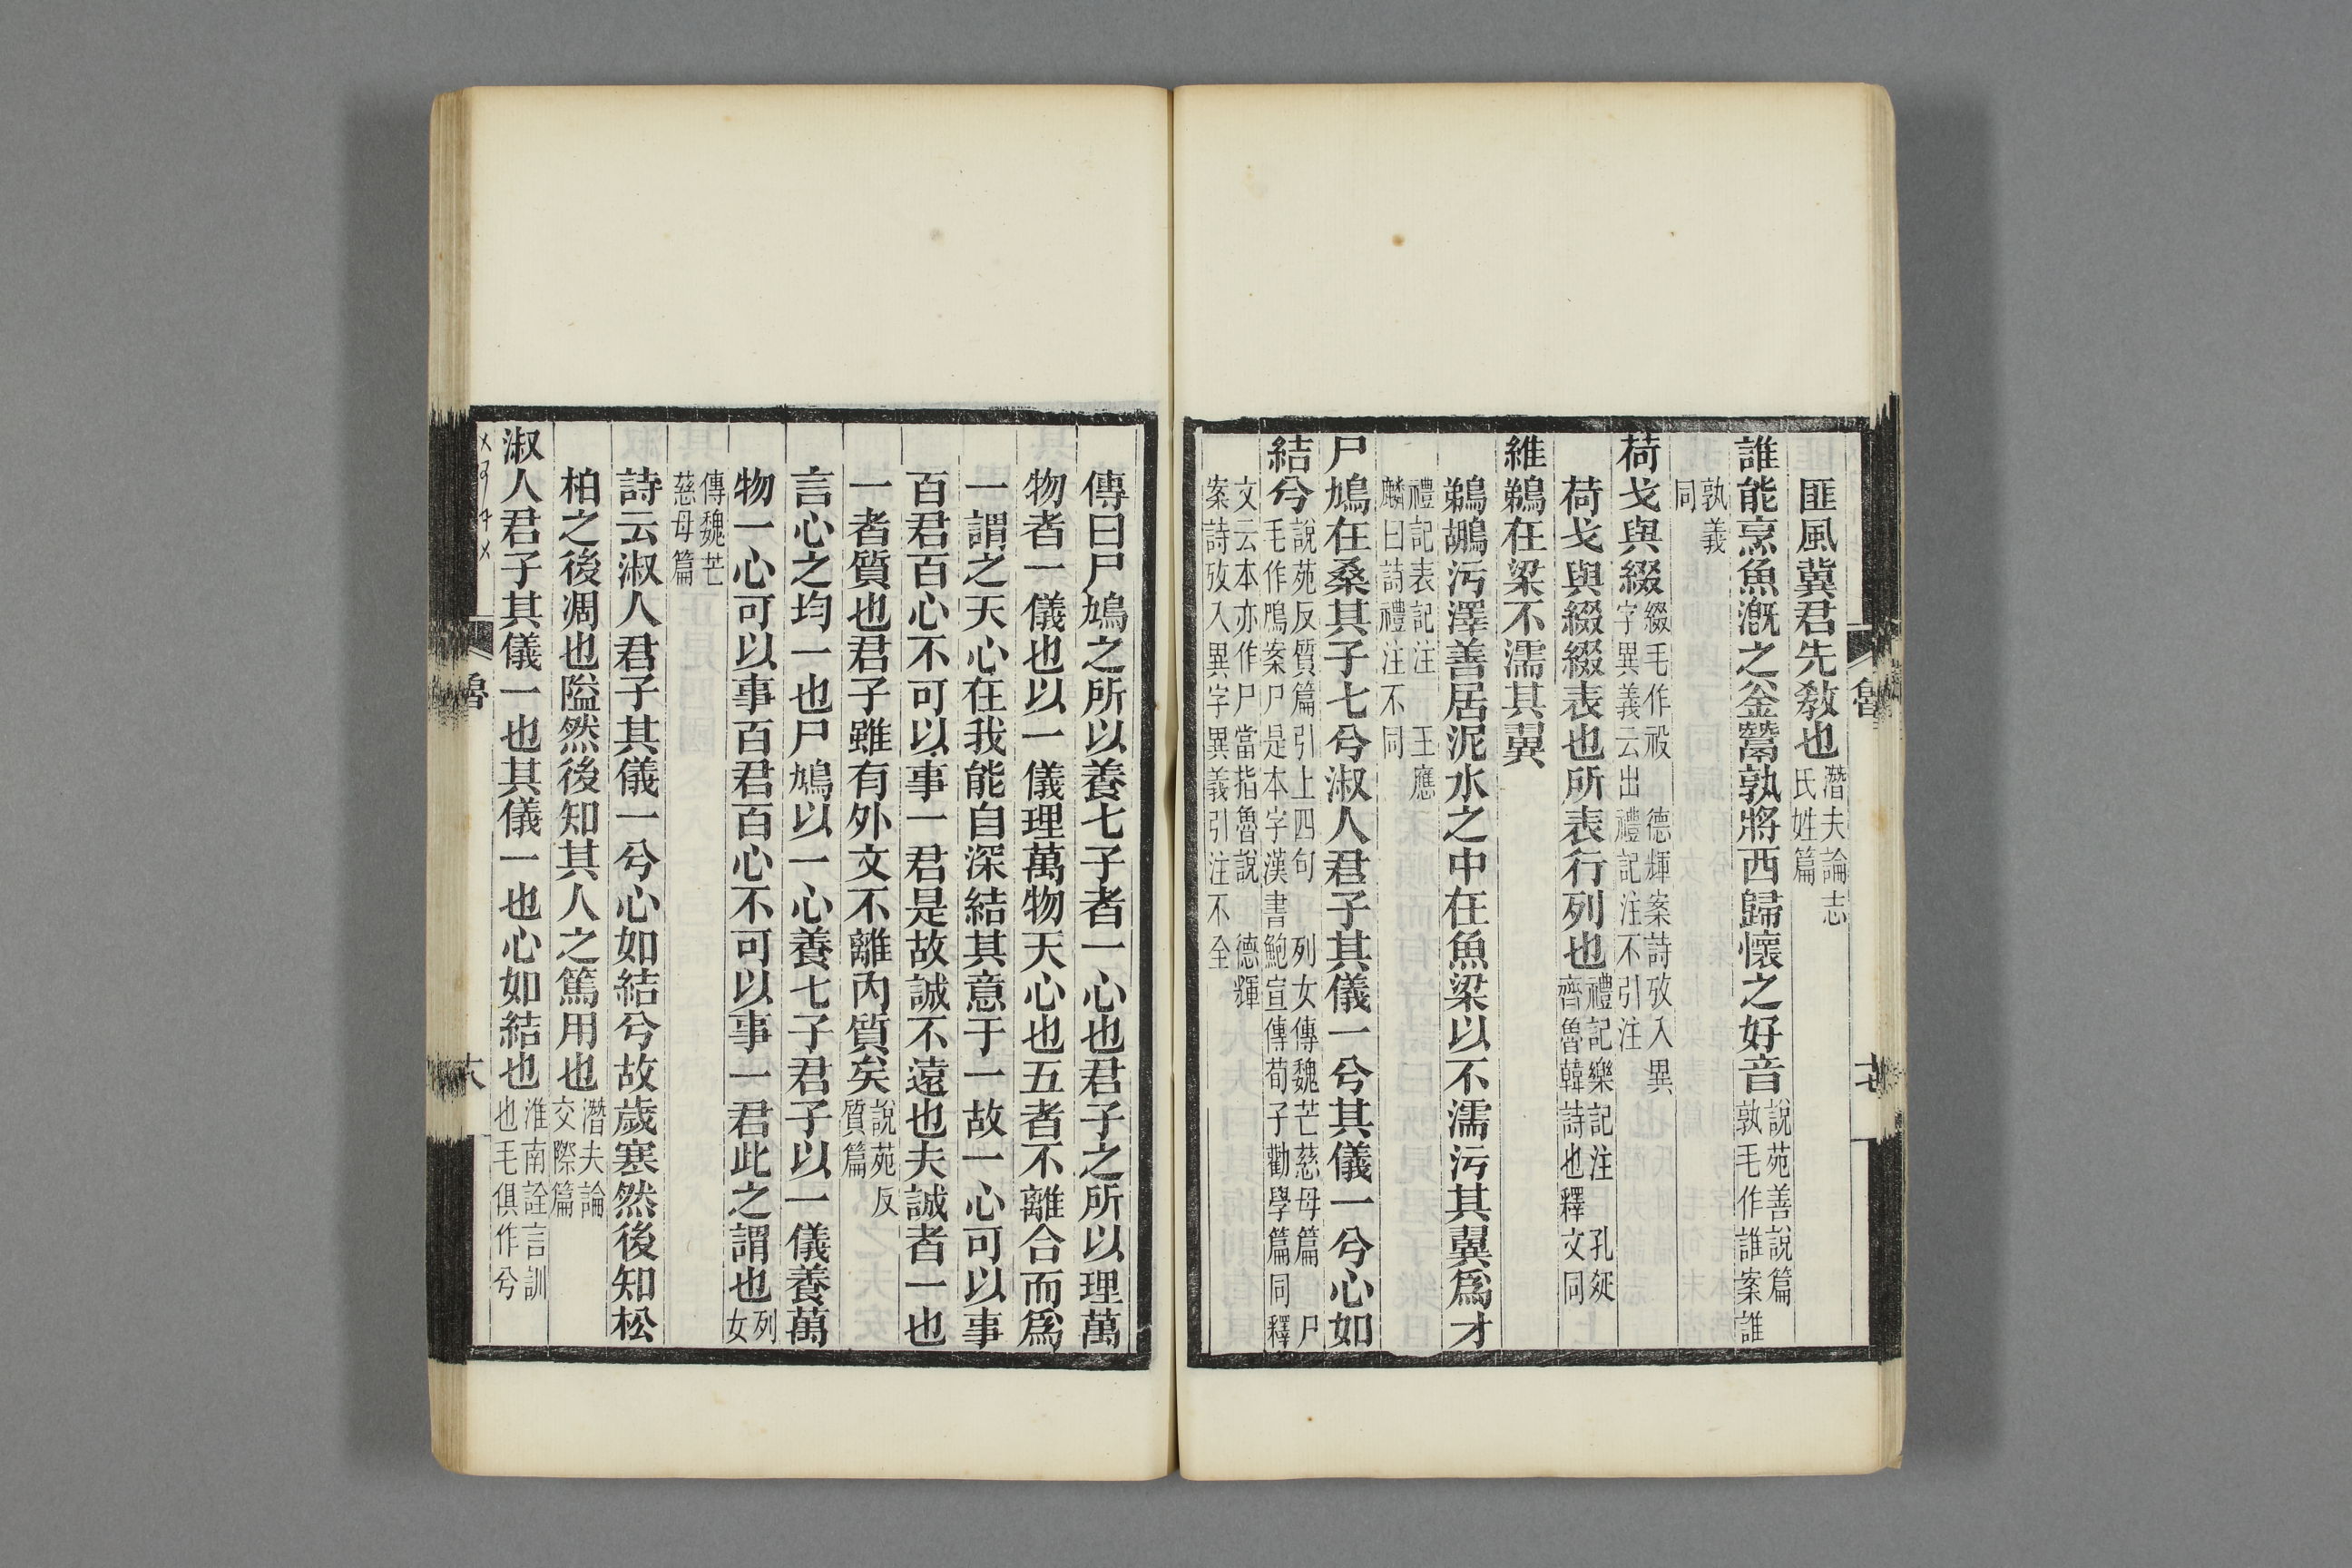 匪風冀君先敎也潛夫論志氏姓篇
誰能烹魚漑之釜鬵孰將西歸懷之好音說苑善說篇孰毛作誰案誰
孰義同
荷戈與綴綴毛作祋德輝案詩攷入異字異義云出禮記注不引注
荷戈與綴綴表也所表行列也禮記樂記注孔疑齊魯韓詩也釋文同
維鵜在梁不濡其翼
鵜鶘污澤善居泥水之中在魚梁以不濡污其翼爲才
禮記表記注王應麟曰詩禮注不同
尸鳩在桑其子七兮淑人君子其儀一兮其儀一兮心如
結兮說苑反質篇引上四句列女傳魏芒慈母篇尸毛作鳲案尸是本字漢書鮑宣傳荀子勸學篇同釋
文云本亦作尸當指魯說德輝案詩攷入異字異義引注不全
魯
傳曰尸鳩之所以養七子者一心也君子之所以理萬
物者一儀也以一儀理萬物天心也五者不離合而爲
一謂之天心在我能自深結其意于一故一心可以事
百君百心不可以事一君是故誠不遠也夫誠者一也
一者質也君子雖有外文不離內質矣說苑反質篇
言心之均一也尸鳩以一心養七子君子以一儀養萬
物一心可以事百君百心不可以事一君此之謂也列女
傳魏芒慈母篇
詩云淑人君子其儀一兮心如結兮故歲寒然後知松
柏之後凋也隘然後知其人之篤用也潛夫論交際篇
淑人君子其儀一也其儀一也心如結也淮南詮言訓也毛俱作兮
魯